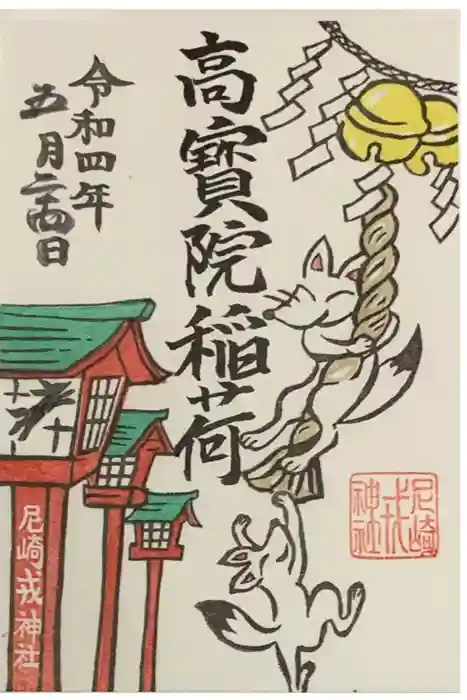 高寶院稲荷
令和四年
五月二四日
尼崎
戎
神社
尼崎戎神社